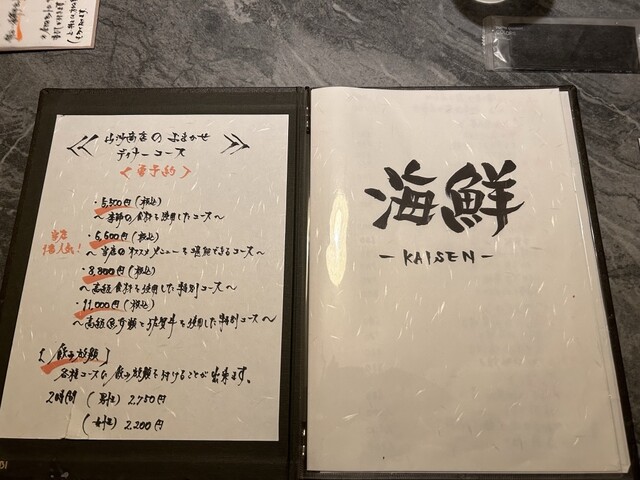 商店の おまかせ
ディナーコース
<要予約>
円(税込)
~季節の食材を使用したコース~
当店
1番人気!
・5,500円(税込)
~当店のオススメメニューを堪能できるコース~
・8,800円(税込)
~高級食材を使用した特別コース~
・11,000円(税込)
~高級魚介類と佐賀牛を使用した特別コース~
[飲み放題]
各種コースに飲み放題を付けることが出来ます。
2時間 (男性) 2,750円
(女性) 2,200円
海鮮
- KAISEN -